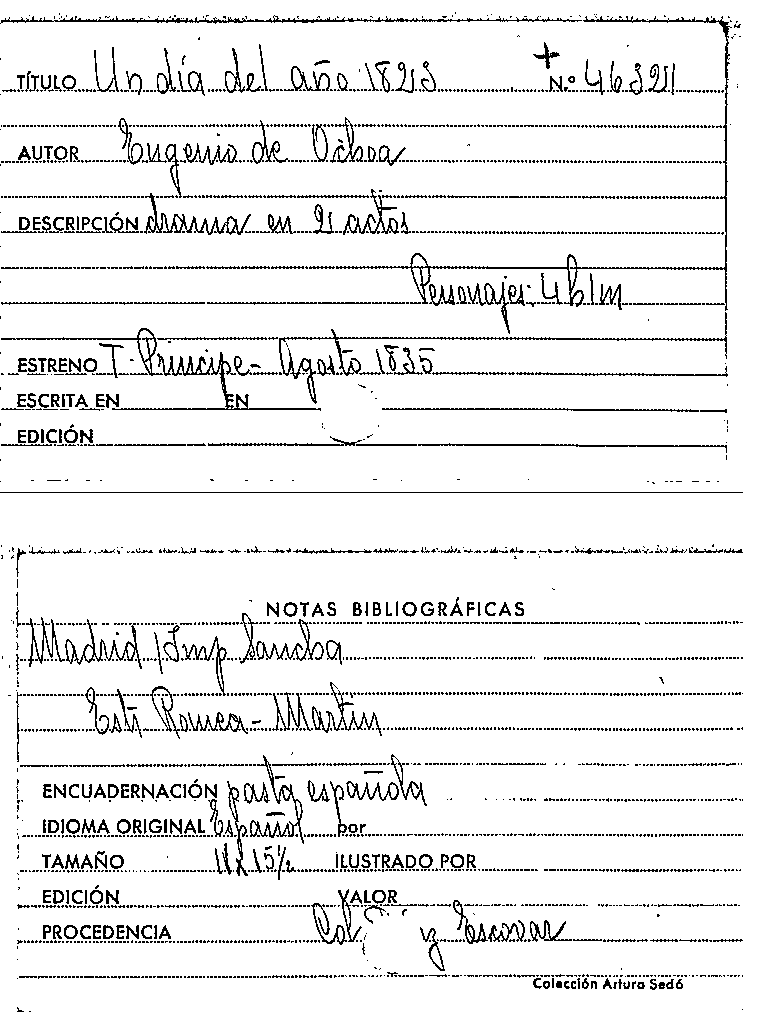 TÍTULO Un día del año 1823 N.º 46321
AUTOR Eugenio de Ochoa
DESCRIPCIÓN drama en 2 actos
Personajes: 4 h 1 m
ESTRENO T. Principe - Agosto 1835
ESCRITA EN EN
EDICIÓN
NOTAS BIBLIOGRÁFICAS
Madrid / Imp Sancha
Estr Romea - Martin
ENCUADERNACIÓN pasta española
IDIOMA ORIGINAL Español por
TAMAÑO 11 x 15½ ILUSTRADO POR
EDICIÓN VALOR
PROCEDENCIA Col z Escovar
Colección Arturo Sedó